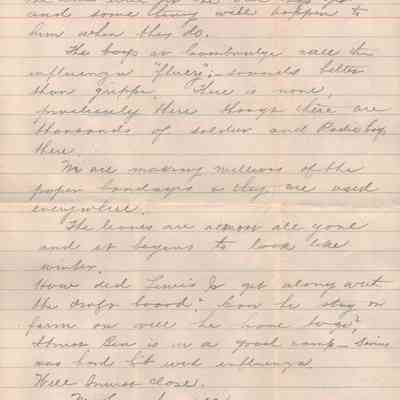 and some thing will happen to
him when they do.
The boys in Cambridge call the
influenza "fluey"; - sounds better
than grippe. There is none,
practically there though there are
thousands of soldiers and Radio boys
there.
We are making millions of the
paper bandages & they are used
everywhere.
The leaves are almost all gone
and it begins to look like
winter.
How did Lewis G get along with
the draft board? Can he stay on
farm or will he have to go?
is in a good camp -
was hard hit with influenza.
Will close.